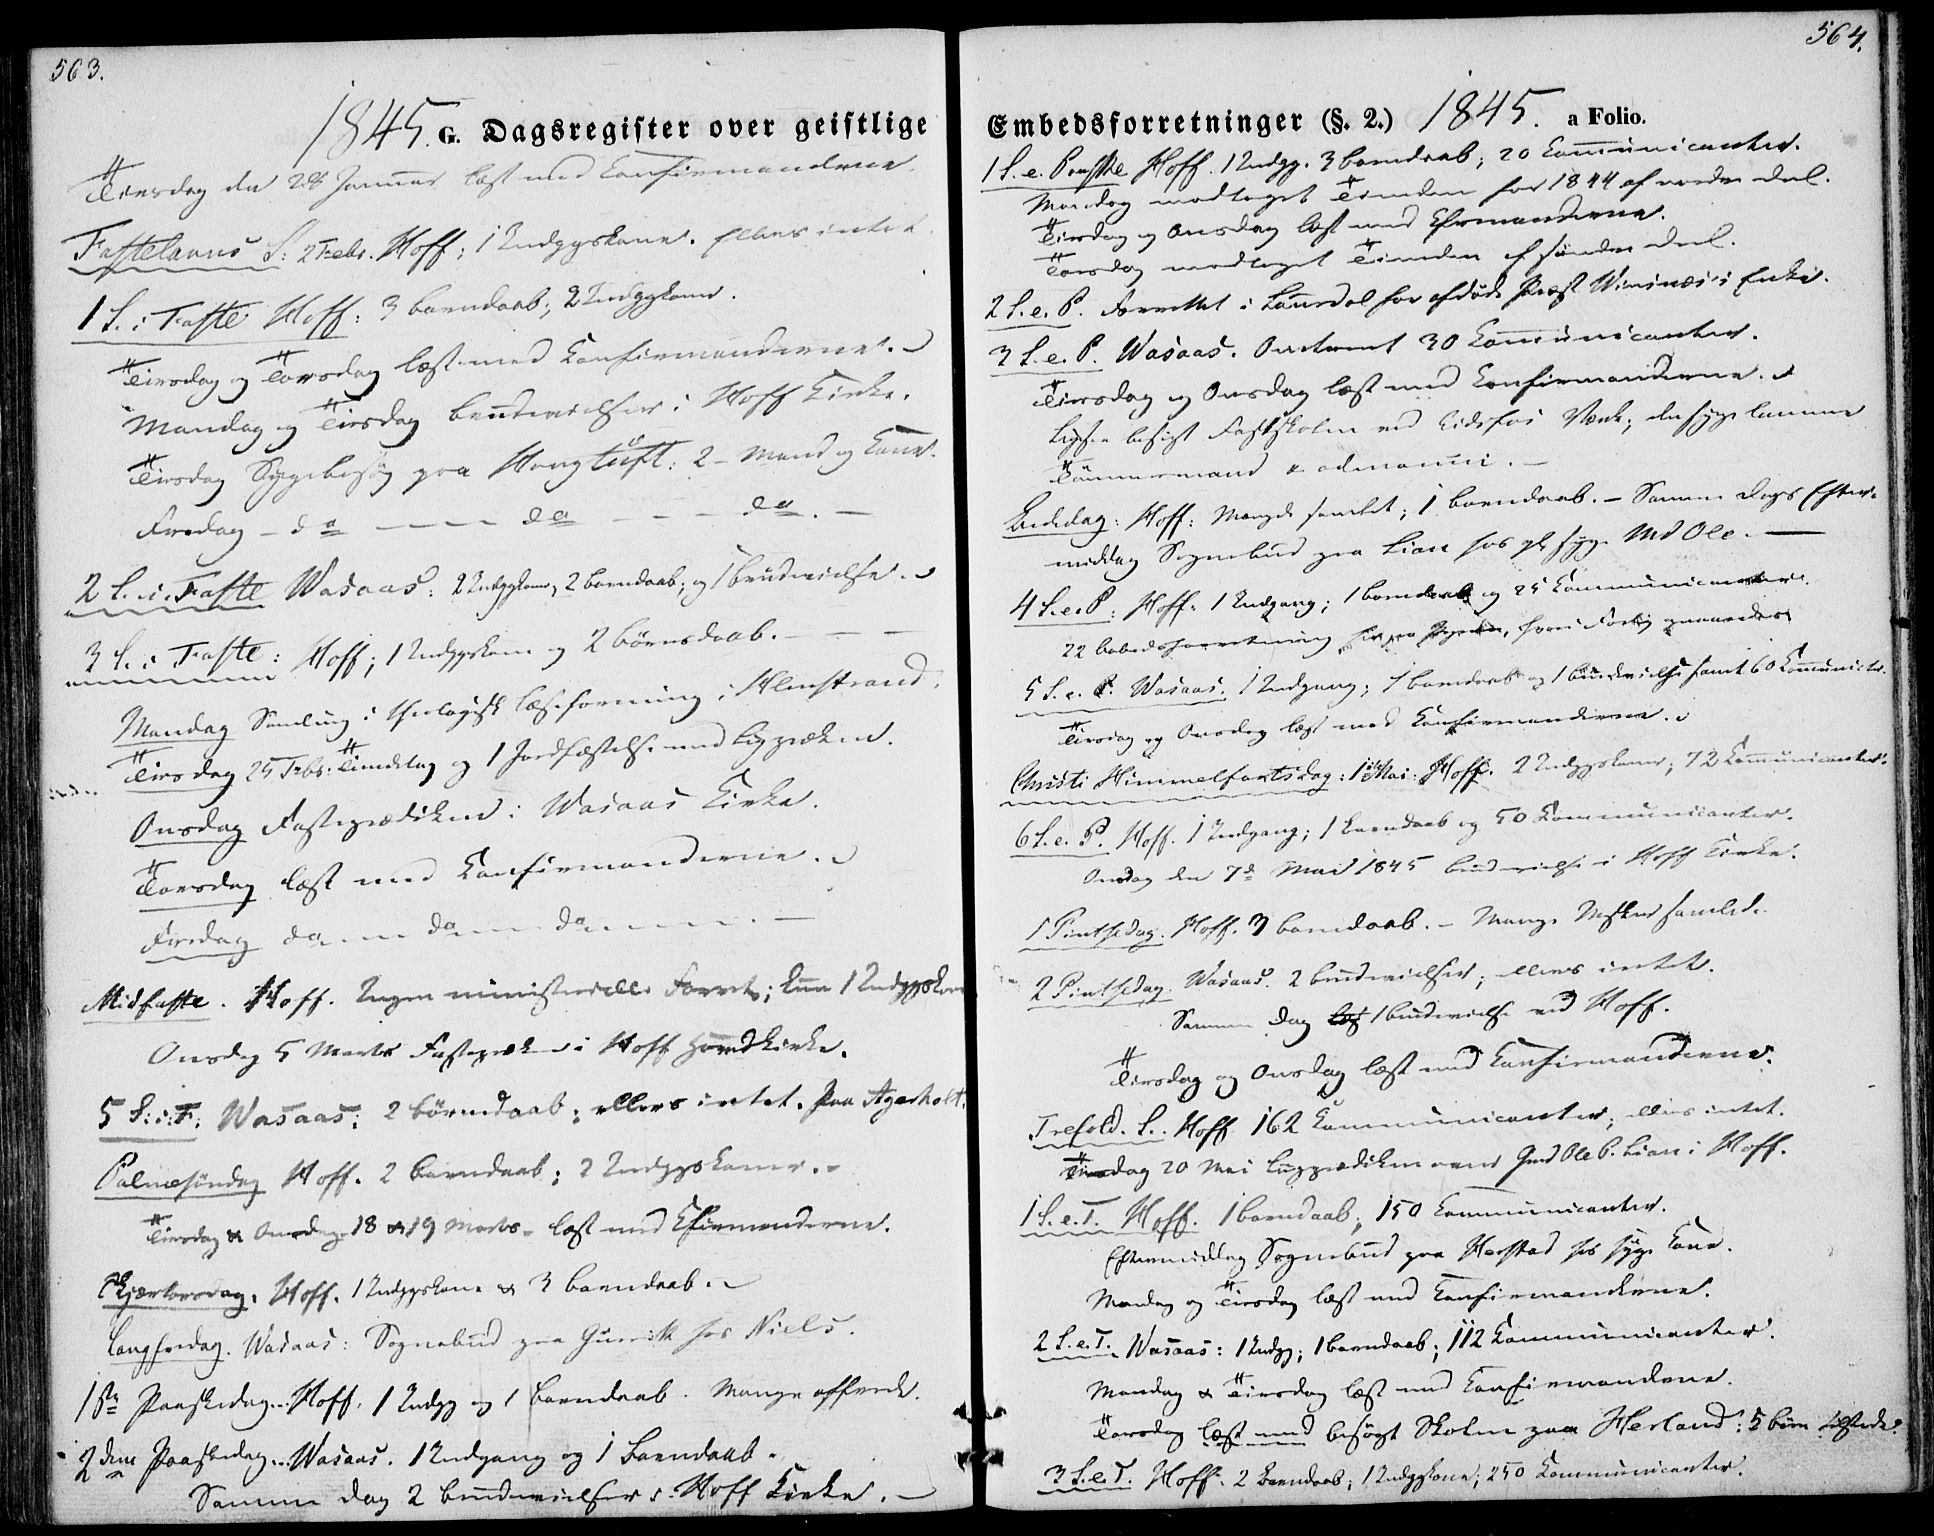 563.
1845. G. Dagsregister over geistlige
Tirsdag den 28 Januar læst med Confirmanderne.
Fastelavns S: 2 Febr. Hoff; 1 Indggskone. Ellers intet.
1 S. i Faste Hoff: 3 barndaab; 2 Indggkoner.
Tirsdag og Torsdag læst med Confirmanderne.
Mandag og Tirsdag brudevielser i Hoff Kirke.
Tirsdag Sygebesøg paa Haugtuft: 2 - Mand og Kone.
Fredag - do - - - do - - - do. -
2 S. i. Faste Wasaas: 2 Indggkoner, 2 barndaab; og 1 brudevielse.
3 S. i Faste: Hoff; 1 Indggskone og 2 børnedaab. - - -
Mandag Samling i theologisk læseforening i Holmestrand.
Tirsdag 25 Febr: Tiendetag og 1 Jordfæstelse med Ligpræken.
Onsdag Fasteprædiken i Wasaas Kirke.
Torsdag læst med Confirmanderne.
Fredag do do do -
Midfaste. Hoff. Ingen ministerielle Forret; kun 1 Indggskone
Onsdag 5 Marts Fastepræken i Hoff Hovedkirke.
5 S: i: F: Wasaas: 2 børnedaab; ellers intet. Paa Agerholt.
Palmesøndag Hoff. 2 barndaab; 2 Indggskoner.
Tirsdag & Onsdag 18 & 19 Marts læst med Cfirmanderne.
Skjærtorsdag. Hoff. 1 Indggskone & 3 barndaab.
Langfredag. Wasaas: Sognebud paa hos Niels.
1ste Paaskedag. Hoff. 1 Indgg og 1 barndaab. Mange offrede.
2den Paaskedag. Wasaas. 1 Indgang og 1 barndaab.
Samme dag 2 brudevielser i Hoff Kirke. -
564.
Embedsforretninger (§. 2.) 1845. a Folio.
1 S. e. Paaske Hoff. 1 Indgg. 3 barndaab; 20 Communicanter.
Mandag modtaget Tienden for 1844 af nordre Deel.
Tirsdag og Onsdag læst med Cfirmanderne.
Torsdag modtaget Tienden af søndre Deel.
2 S. e. P. Forrettet i Laurdal for afdøde Præst Enke.
3 S. e. P. Wasaas. Omtrent 30 Communicanter.
Tirsdag og Onsdag læst med Confirmanderne.
besøgt Fastskolen ved Eidsfos Værk; den syge lamme
Tømmermand
Bededag: Hoff: Mængde samlet; 1 barndaab. - Samme Dags Efter-
middag Sognebud paa Lian hos syge Md Ole. -
4 S. e. P: Hoff. 1 Indgang; 1 barndaab og 25 Communicanter.
22
5 S. e. P. Wasaas. 1 Indgang; 1 barndaab og 1 brudevielse samt 60 Communicter.
Tirsdag og Onsdag læst med Confirmanderne.
Christi Himmelfartsdag: 1ste Mai: Hoff. 2 Indggskoner; 72 Communicanter.
6 S. e. P. Hoff. 1 Indgang; 1 barndaab og 50 Communicanter.
Onsdag den 7de Mai 1845 brudevielse i Hoff Kirke.
1 Pintsedag. Hoff. 3 barndaab. - Mange Msker samlede.
2 Pintsedag. Wasaas. 2 brudevielser; ellers intet.
Samme Dag 1 brudevielse ved Hoff.
Tirsdag og Onsdag læst med Confirmanderne.
Trefold. S. Hoff 162 Communicanter, ellers intet.
Tirsdag 20 Mai Ligprædiken over Gmd Ole P. Lian i Hoff.
1 S. e. T. Hoff. 1 barndaab; 150 Communicanter.
Eftermiddag Sognebud paa Herstad hos syge Kone.
Mandag og Tirsdag læst med Confirmanderne.
2 S. e. T. Wasaas: 1 Indgg; 1 barndaab; 112 Communicanter.
Mandag & Tirsdag læst med Confirmanderne.
Torsdag læst med besøgt Skolen paa Herland: 5 børn tilstede.
3 S. e. T. Hoff. 2 barndaab; 1 Indggkone; 250 Communicanter.